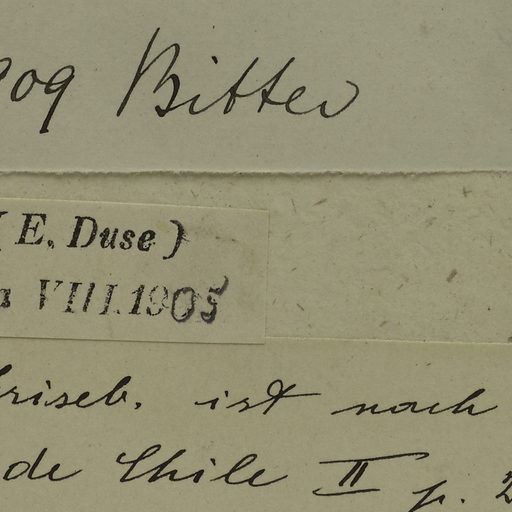 909 Bitter
( E. Duse )
VIII.1905
Griseb. ist nach
de Chile II p. 2